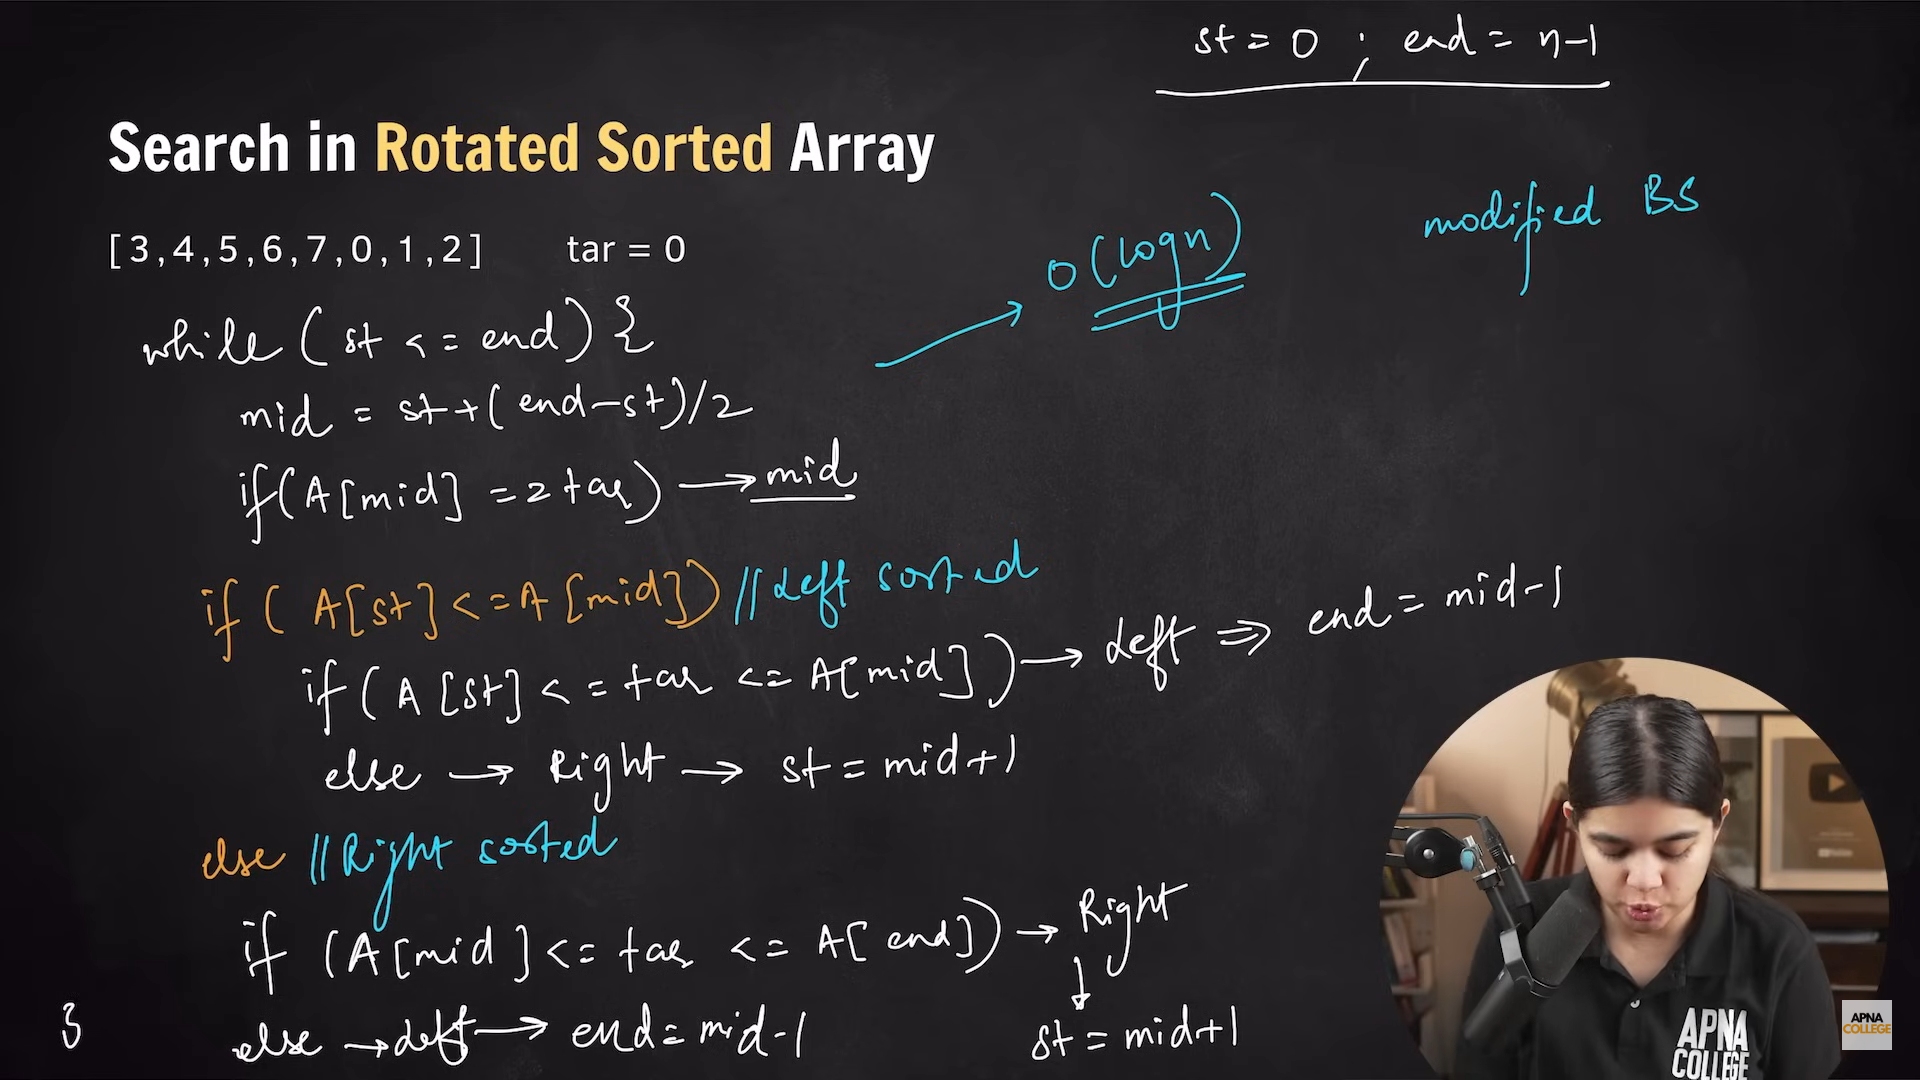 st = 0 ; end = n-1
Search in Rotated Sorted Array
[3,4,5,6,7,0,1,2] tar = 0
while (st <= end) {
mid = st+(end-st)/2
if(A[mid] == tar) → mid
→ O(logn)
modified BS
if (A[st] <= A[mid]) //Left sorted
if (A[st] <= tar <= A[mid]) → Left ⇒ end = mid-1
else → Right → st = mid+1
else //Right sorted
if (A[mid] <= tar <= A[end]) → Right
↓
st = mid+1
else → Left → end = mid-1
}
APNA
COLLEGE
APNA
COLLEGE